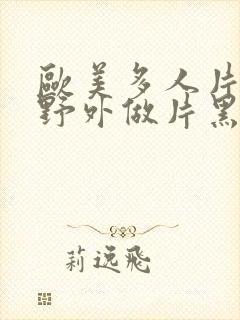 歐美多人片
野外做片黑
莉逸飛